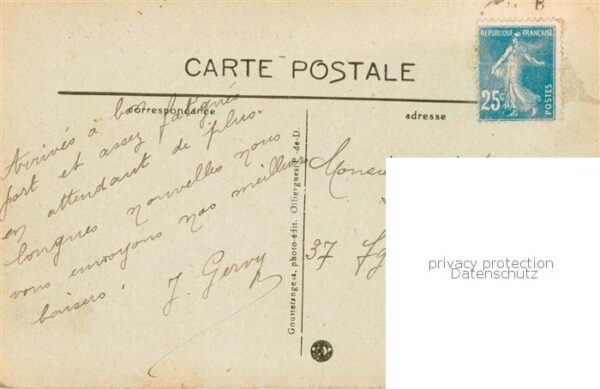 B
REPUBLIQUE FRANÇAISE
25c
POSTES
CARTE POSTALE
correspondance
adresse
Arrivés à bon
port et assez fatigués
en attendant de plus
longues nouvelles nous
vous envoyons nos meilleurs
baisers.
J. Gervy
Gouttelange-s, photo-édit. Olliergues-P.-de-D.
37 Fg
privacy protection
Datenschutz